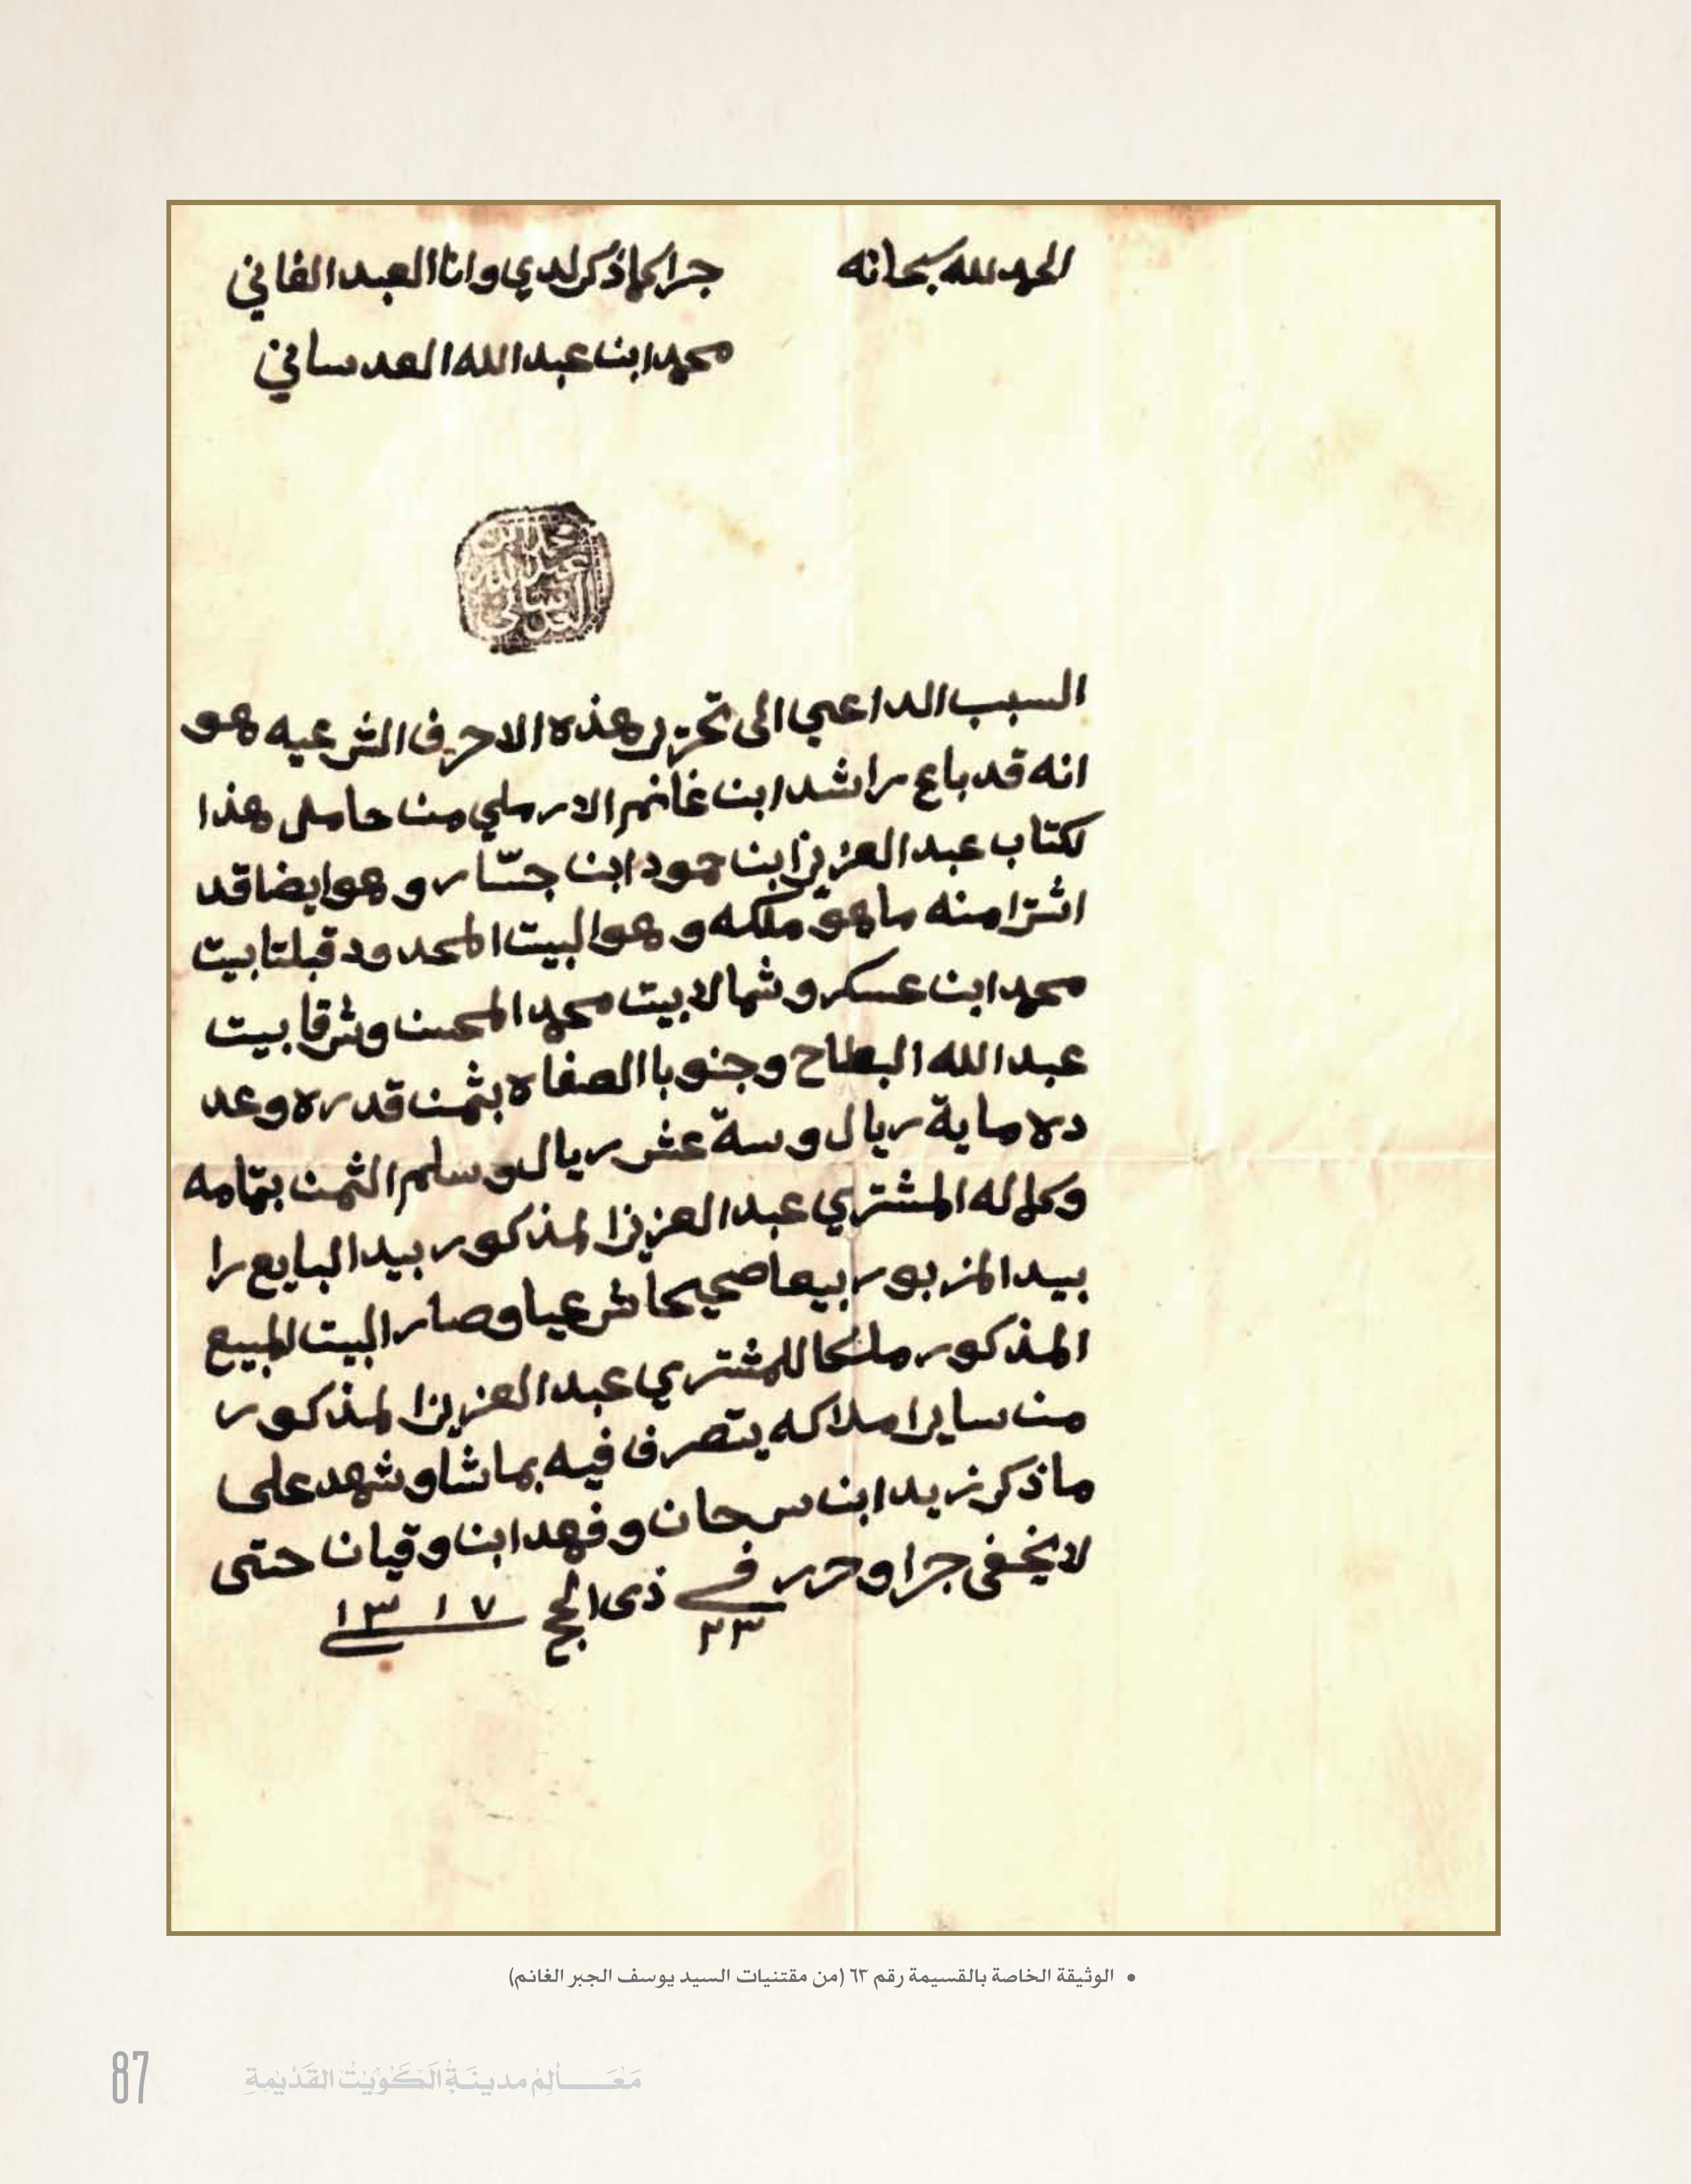 الحمد لله سبحانه
جرا كما ذكر لدي وانا العبد الفاني
محمد ابن عبد الله العدساني
محمد ابن
عبد الله
العدساني
السبب الداعي الى تحرير هذه الاحرف الشرعيه هو
انه قد باع راشد ابن غانم الارملي من حامل هذا
لكتاب عبد العزيز ابن حمود ابن جسّار وهو ايضا قد
اشترا منه ما هو ملكه وهو البيت المحدود قبلتا بيت
محمد ابن عسكر وشمالا بيت محمد المحسن وشرقا بيت
عبد الله البطاح وجنوبا الصفاه بثمن قدره وعد
ده ماية ريال وستة عشر ريال وسلم الثمن بتمامه
وكماله المشتري عبد العزيز المذكور بيد البايع را
بيد المزبور بيعا صحيحا شرعيا وصار البيت المبيع
المذكور ملكا للمشتري عبد العزيز المذكور
من ساير املاكه يتصرف فيه بما شا وشهد على
ما ذكر زيد ابن سرحان وفهد ابن وقيان حتى
لا يخفى جرا وحرر في ٢٣ ذى الحج ١٣١٧
• الوثيقة الخاصة بالقسيمة رقم ٦٣ (من مقتنيات السيد يوسف الجبر الغانم)
87
مَعَالِم مدينَةُ الكُوَيْتُ القَدْيمةِ